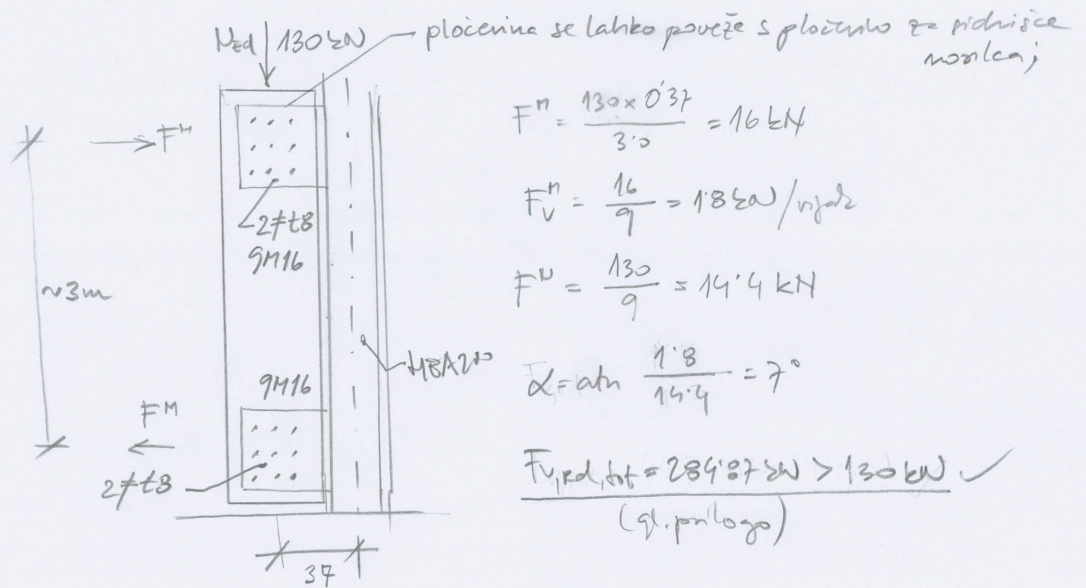 NEd 130 kN
pločevina se lahko poveže s pločevino za sidrišče
nosilca;
F^M
2≠t8
9M16
~3m
HEA200
9M16
F^M
2≠t8
37
F^M = 130 x 0'37 / 3'0 = 16 kN
F_V^M = 16 / 9 = 1'8 kN/vijak
F^N = 130 / 9 = 14'4 kN
α = atn 1'8 / 14'4 = 7°
Fv,Rd,tot = 284'87 kN > 130 kN ✓
(gl. prilogo)